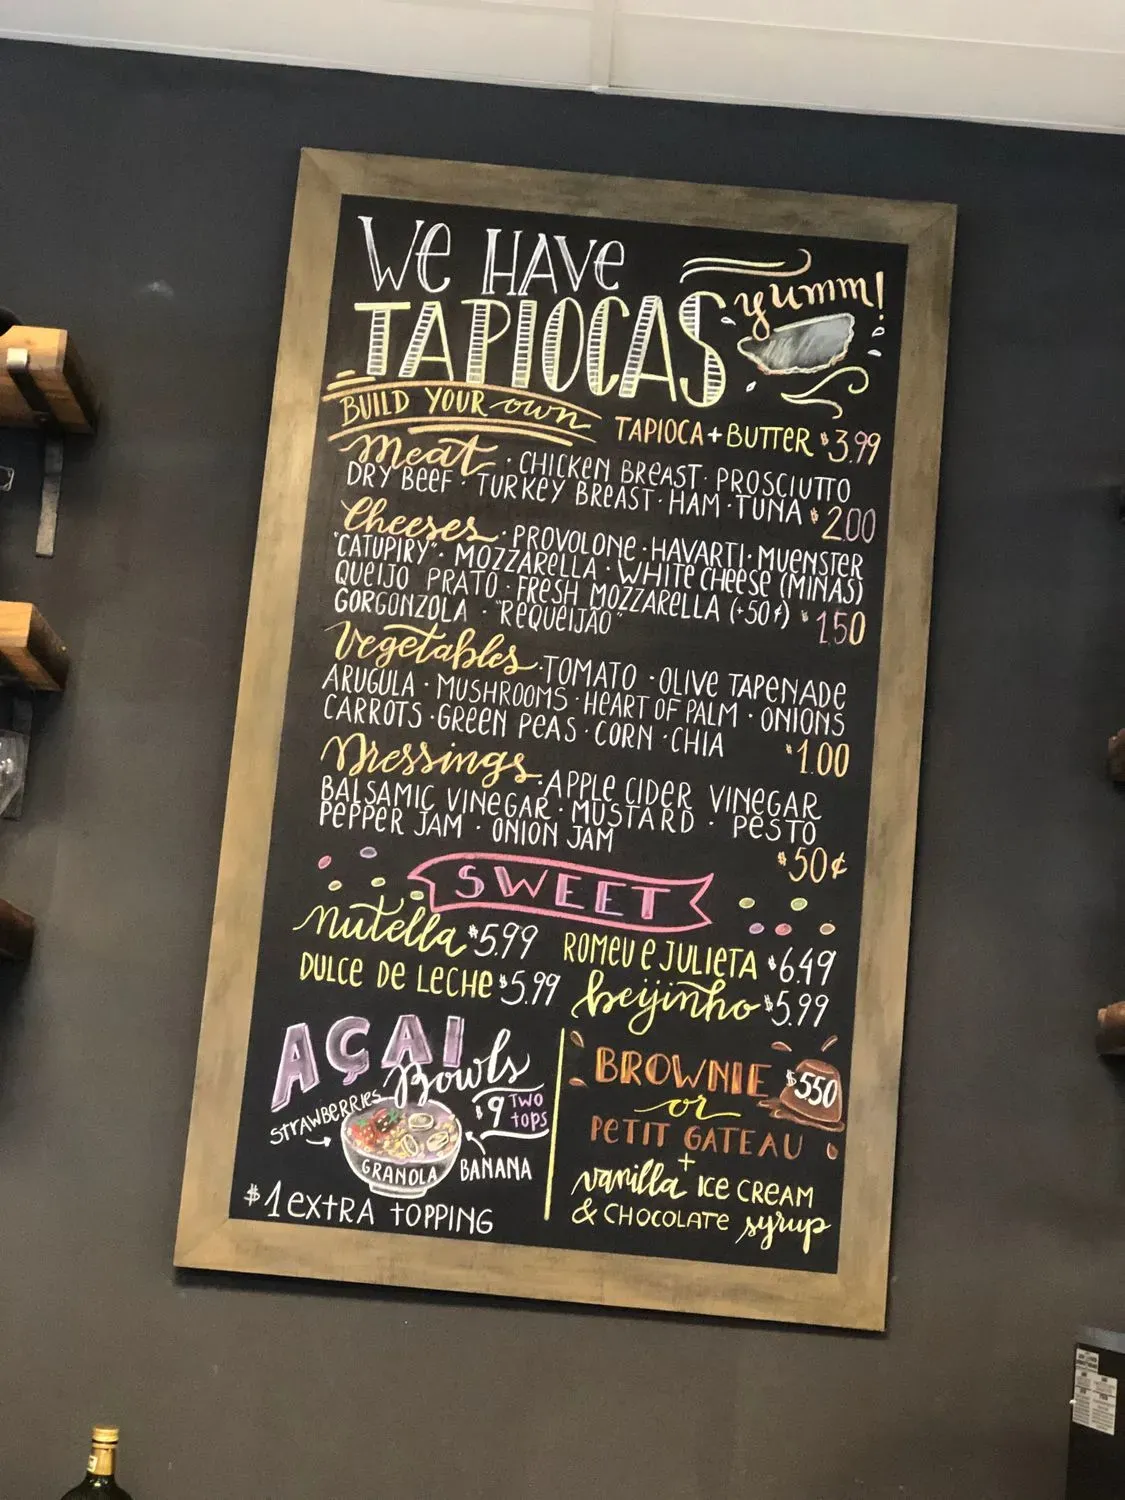 WE HAVE
TAPIOCAS yumm!
BUILD YOUR own TAPIOCA + BUTTER $3.99
Meat · CHICKEN BREAST · PROSCIUTTO
DRY BEEF · TURKEY BREAST · HAM · TUNA $2.00
Cheeses · PROVOLONE · HAVARTI · MUENSTER
"CATUPIRY" · MOZZARELLA · WHITE CHEESE (MINAS)
QUEIJO PRATO · FRESH MOZZARELLA (+50¢) $1.50
GORGONZOLA · "REQUEIJÃO"
Vegetables · TOMATO · OLIVE TAPENADE
ARUGULA · MUSHROOMS · HEART OF PALM · ONIONS
CARROTS · GREEN PEAS · CORN · CHIA $1.00
Dressings · APPLE CIDER VINEGAR
BALSAMIC VINEGAR · MUSTARD · PESTO
PEPPER JAM · ONION JAM
$50¢
SWEET
nutella $5.99 ROMEU E JULIETA $6.49
DULCE DE LECHE $5.99 beijinho $5.99
AÇAI
Bowls
$9 TWO
TOPS
STRAWBERRIES
GRANOLA BANANA
$1 EXTRA TOPPING
BROWNIE $550
or
PETIT GATEAU
+
vanilla ICE CREAM
& CHOCOLATE syrup